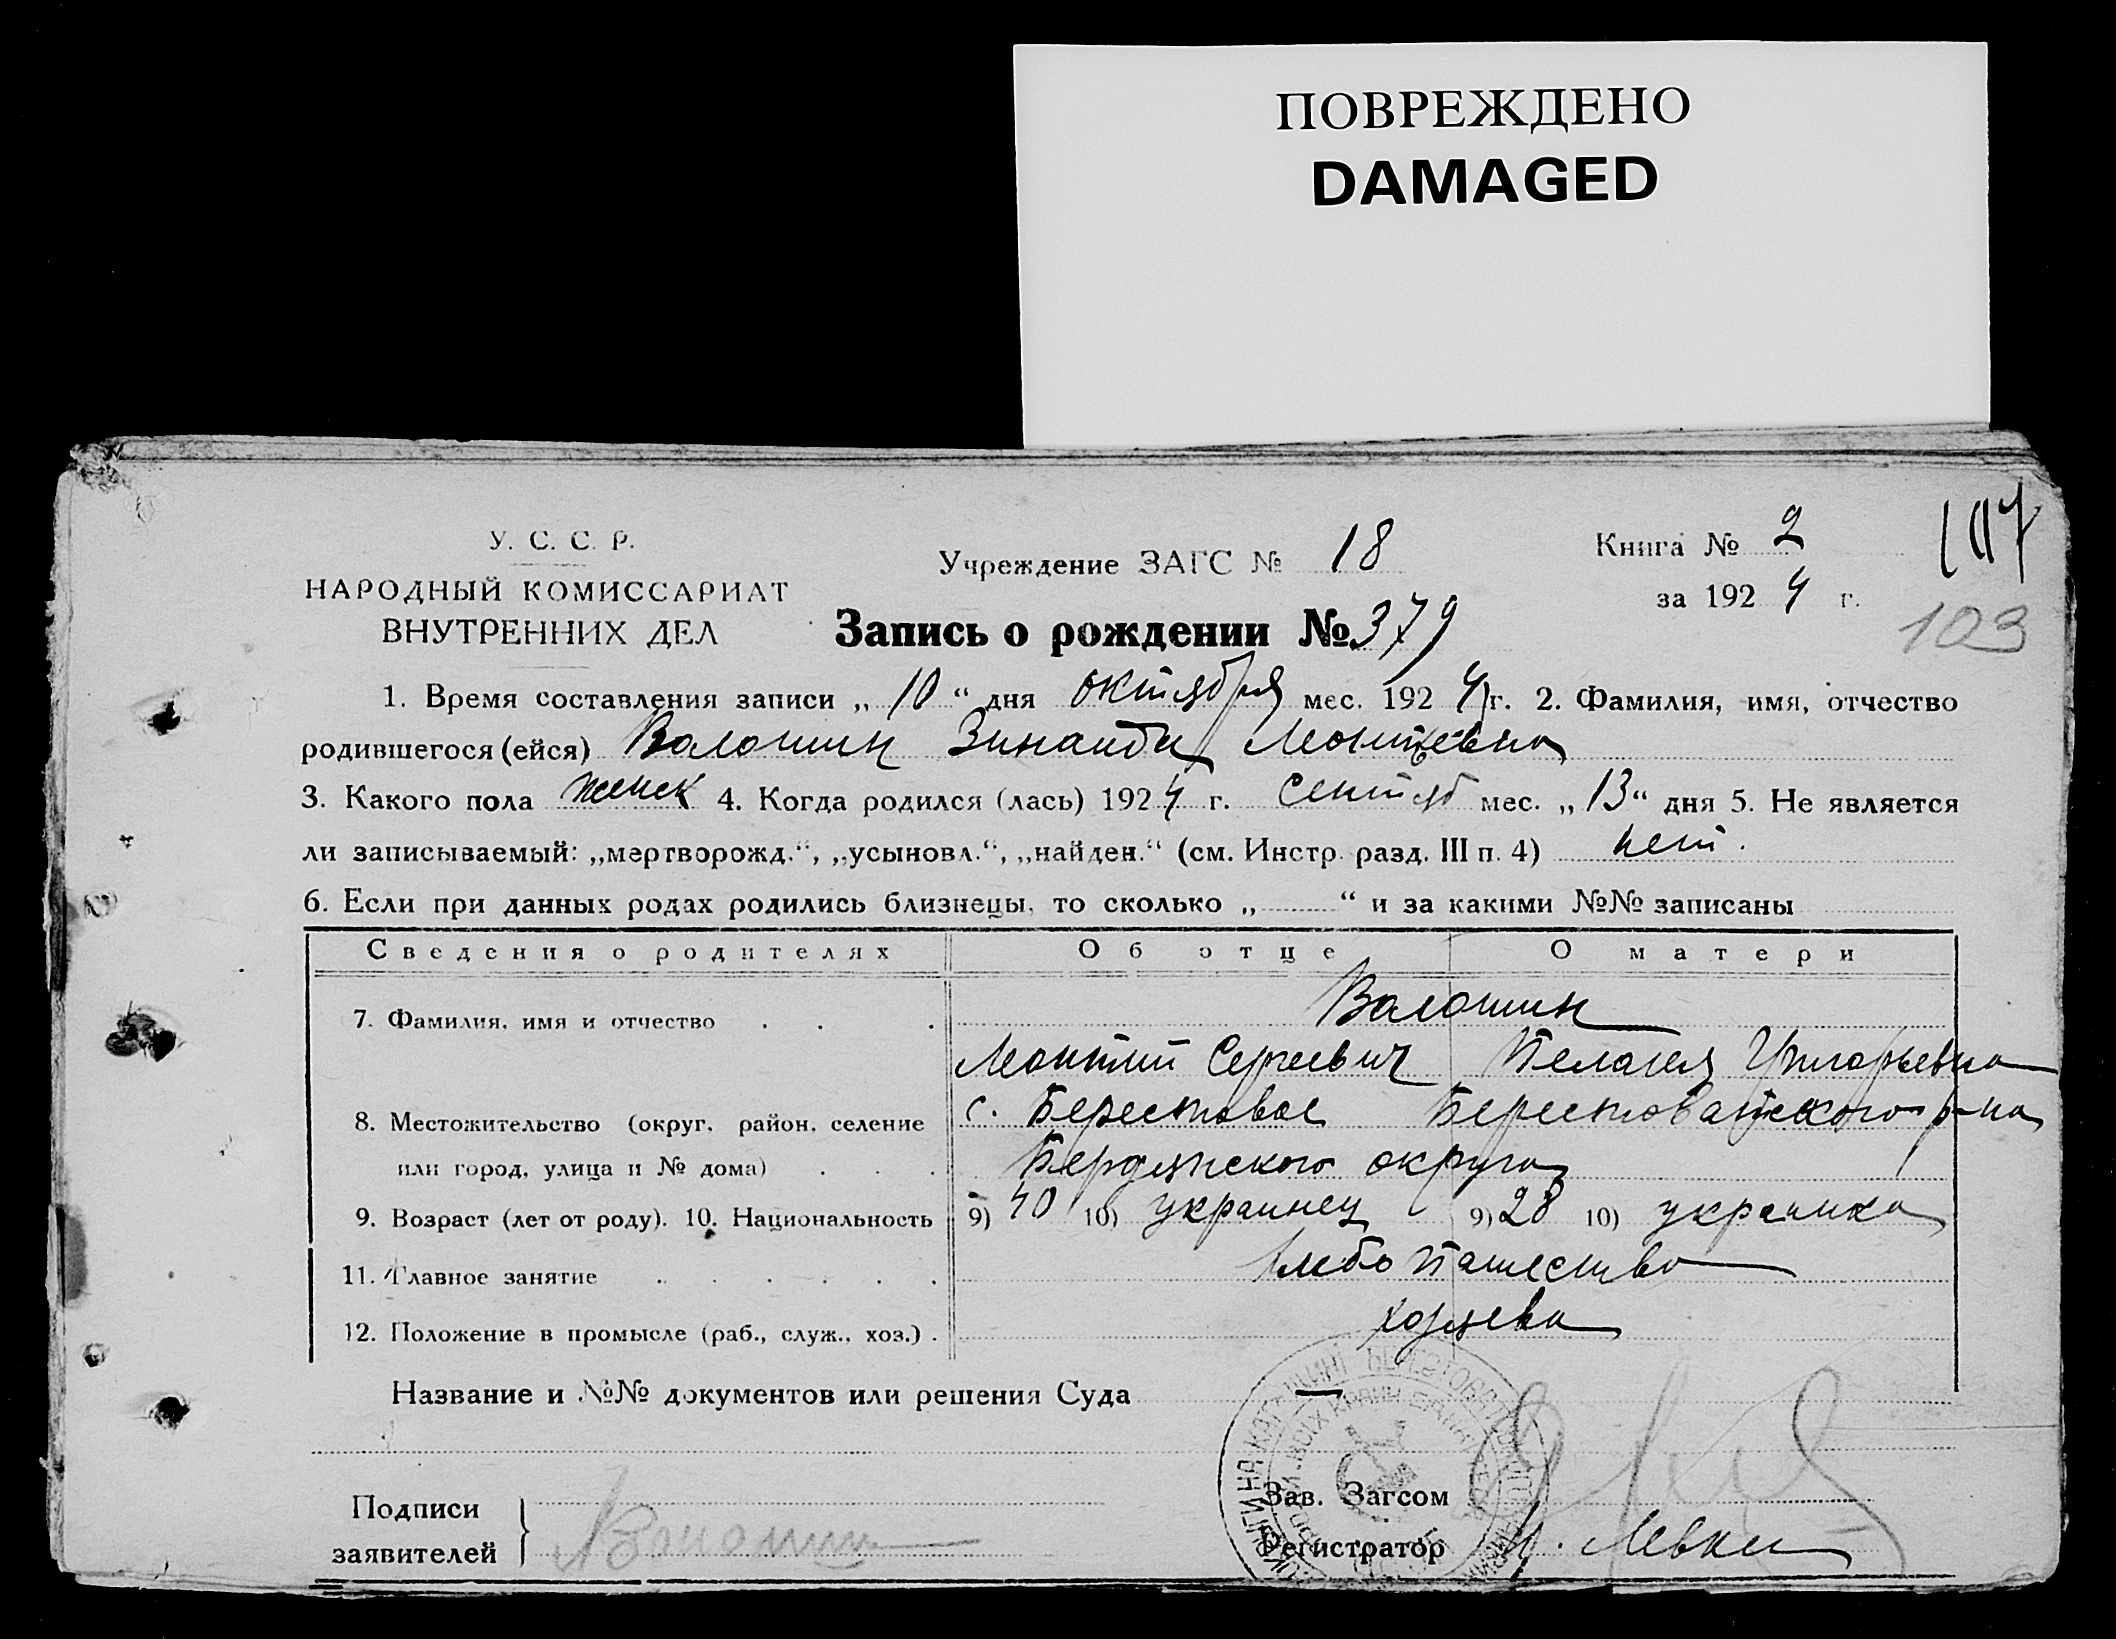 ПОВРЕЖДЕНО
DAMAGED
У. С. С. Р.
НАРОДНЫЙ КОМИССАРИАТ
ВНУТРЕННИХ ДЕЛ
Учреждение ЗАГС № 18
Книга № 2
за 1924 г.
107
103
Запись о рождении № 379
1. Время составления записи „ 10 “ дня октября мес. 1924 г. 2. Фамилия, имя, отчество
родившегося (ейся) Волошин Зинаида Леонтьевна
3. Какого пола женск 4. Когда родился (лась) 1924 г. сентяб мес. „ 13 “ дня 5. Не является
ли записываемый: „мертворожд.“, „усыновл.“, „найден.“ (см. Инстр. разд. III п. 4) нет.
6. Если при данных родах родились близнецы, то сколько „ “ и за какими №№ записаны
Сведения о родителях Об отце О матери
7. Фамилия, имя и отчество Волошин
Леонтий Сергеевич Пелагея Григорьевна
8. Местожительство (округ, район, селение с. Берестовое Берестовайского р-на
или город, улица и № дома) Бердянского округа
9. Возраст (лет от роду). 10. Национальность 9) 40 10) украинец 9) 28 10) украинка
11. Главное занятие хлебопашество
12. Положение в промысле (раб., служ., хоз.) хозяева
Название и №№ документов или решения Суда —
Подписи
заявителей Волошин
Зав. Загсом
Регистратор